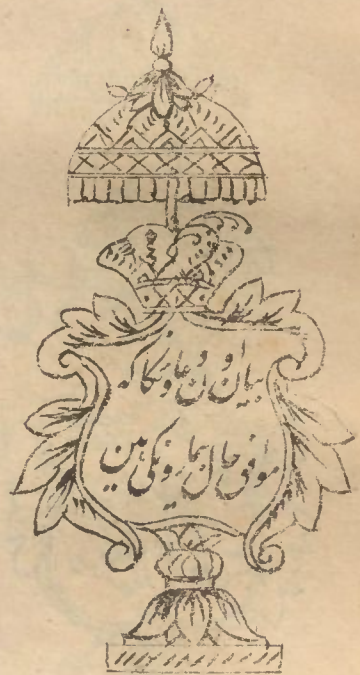 بیان اون دعاونکا که
موافق حال بیمارونکی هین